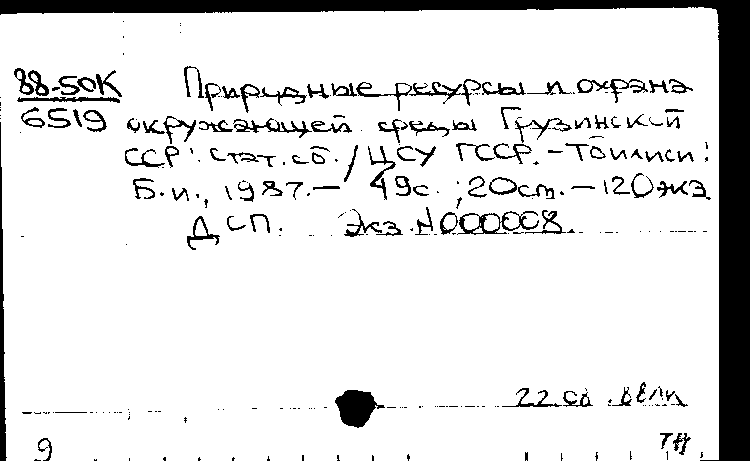 88-50К Природные ресурсы и охрана
6519 окружающей среды Грузинской
ССР: Стат. сб. / ЦСУ ГССР. - Тбилиси:
Б.и., 1987. - 49с.; 20см. - 120экз.
ДСП. Экз. №000008.
22.08.88
9